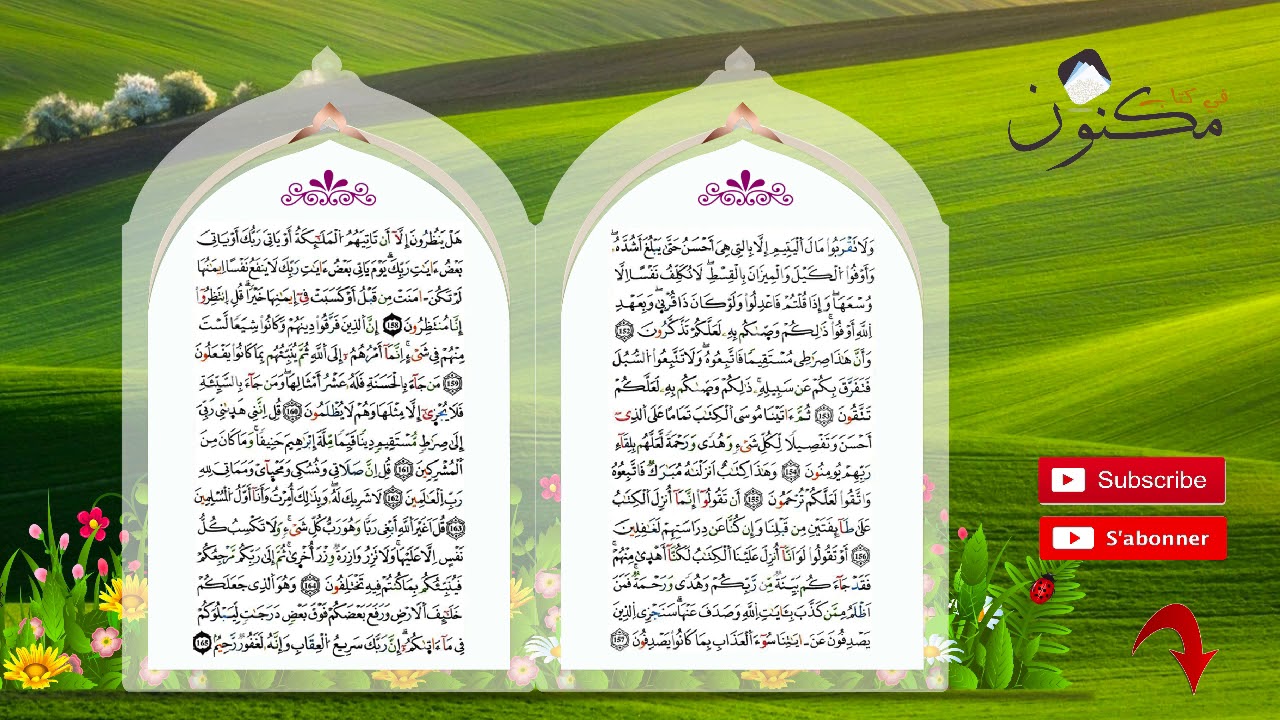 في كتاب
مكنون
وَلَا تَقْرَبُوا مَالَ اَلْيَتِيمِ إِلَّا بِالتِي هِيَ أَحْسَنُ حَتَّىٰ يَبْلُغَ أَشُدَّهُۥ
وَأَوْفُوا اُلْكَيْلَ وَالْمِيزَانَ بِالْقِسْطِ لَا نُكَلِّفُ نَفْسًا اِلَّا
وُسْعَهَا وَإِذَا قُلْتُمْ فَاعْدِلُوا وَلَوْ كَانَ ذَا قُرْبَىٰ وَبِعَهْدِ
اِللَّهِ أَوْفُوا ذَٰلِكُمْ وَصَّىٰكُم بِهِۦ لَعَلَّكُمْ تَذَّكَّرُونَ 152
وَأَنَّ هَٰذَا صِرَٰطِي مُسْتَقِيمًا فَاتَّبِعُوهُ وَلَا تَتَّبِعُوا اُلسُّبُلَ
فَتَفَرَّقَ بِكُمْ عَن سَبِيلِهِۦ ذَٰلِكُمْ وَصَّىٰكُم بِهِۦ لَعَلَّكُمْ
تَتَّقُونَ 153 ثُمَّ ءَاتَيْنَا مُوسَى اَلْكِتَٰبَ تَمَامًا عَلَى اَلذِي
أَحْسَنَ وَتَفْصِيلًا لِّكُلِّ شَيْءٍ وَهُدًى وَرَحْمَةً لَّعَلَّهُم بِلِقَآءِ
رَبِّهِمْ يُومِنُونَ 154 وَهَٰذَا كِتَٰبٌ اَنزَلْنَٰهُ مُبَٰرَكٌ فَاتَّبِعُوهُ
وَاتَّقُوا لَعَلَّكُمْ تُرْحَمُونَ 155 أَن تَقُولُوا إِنَّمَا أُنزِلَ اَلْكِتَٰبُ
عَلَىٰ طَآئِفَتَيْنِ مِن قَبْلِنَا وَإِن كُنَّا عَن دِرَاسَتِهِمْ لَغَٰفِلِينَ
156 أَوْ تَقُولُوا لَوَ اَنَّا أُنزِلَ عَلَيْنَا اَلْكِتَٰبُ لَكُنَّا أَهْدَىٰ مِنْهُمْ
فَقَدْ جَآءَكُم بَيِّنَةٌ مِّن رَّبِّكُمْ وَهُدًى وَرَحْمَةٌ فَمَنَ
اَظْلَمُ مِمَّن كَذَّبَ بِـَٔايَٰتِ اِللَّهِ وَصَدَفَ عَنْهَا سَنَجْزِي اِلذِينَ
يَصْدِفُونَ عَنَ ـايَٰتِنَا سُوٓءَ اَلْعَذَابِ بِمَا كَانُوا يَصْدِفُونَ 157
هَلْ يَنظُرُونَ إِلَّا أَن تَاتِيَهُمُ اُلْمَلَٰٓئِكَةُ أَوْ يَاتِيَ رَبُّكَ أَوْ يَاتِيَ
بَعْضُ ءَايَٰتِ رَبِّكَ يَوْمَ يَاتِي بَعْضُ ءَايَٰتِ رَبِّكَ لَا يَنفَعُ نَفْسًا اِيمَٰنُهَا
لَمْ تَكُنَ ـامَنَتْ مِن قَبْلُ أَوْ كَسَبَتْ فِي إِيمَٰنِهَا خَيْرًا قُلِ اِنتَظِرُوا
إِنَّا مُنتَظِرُونَ 158 إِنَّ اَلذِينَ فَرَّقُوا دِينَهُمْ وَكَانُوا شِيَعًا لَّسْتَ
مِنْهُمْ فِي شَيْءٍ اِنَّمَا أَمْرُهُمُۥ إِلَى اَللَّهِ ثُمَّ يُنَبِّئُهُم بِمَا كَانُوا يَفْعَلُونَ
159 مَن جَآءَ بِالْحَسَنَةِ فَلَهُۥ عَشْرُ أَمْثَالِهَا وَمَن جَآءَ بِالسَّيِّئَةِ
فَلَا يُجْزَىٰ إِلَّا مِثْلَهَا وَهُمْ لَا يُظْلَمُونَ 160 قُلِ اِنَّنِي هَدَىٰنِي رَبِّيَ
إِلَىٰ صِرَٰطٍ مُّسْتَقِيمٍ دِينًا قَيِّمًا مِّلَّةَ إِبْرَٰهِيمَ حَنِيفًا وَمَا كَانَ مِنَ
اَلْمُشْرِكِينَ 161 قُلِ اِنَّ صَلَاتِي وَنُسُكِي وَمَحْيَآيْ وَمَمَاتِيَ لِلهِ
رَبِّ اِلْعَٰلَمِينَ 162 لَا شَرِيكَ لَهُۥ وَبِذَٰلِكَ أُمِرْتُ وَأَنَا أَوَّلُ اُلْمُسْلِمِينَ
163 قُلَ اَغَيْرَ اَللَّهِ أَبْغِي رَبًّا وَهُوَ رَبُّ كُلِّ شَيْءٍ وَلَا تَكْسِبُ كُلُّ
نَفْسٍ اِلَّا عَلَيْهَا وَلَا تَزِرُ وَازِرَةٌ وِزْرَ أُخْرَىٰ ثُمَّ إِلَىٰ رَبِّكُم مَّرْجِعُكُمْ
فَيُنَبِّئُكُم بِمَا كُنتُمْ فِيهِ تَخْتَلِفُونَ 164 وَهُوَ اَلذِي جَعَلَكُمْ
خَلَٰٓئِفَ اَلَارْضِ وَرَفَعَ بَعْضَكُمْ فَوْقَ بَعْضٍ دَرَجَٰتٍ لِّيَبْلُوَكُمْ
فِي مَا ءَاتَىٰكُمُۥ إِنَّ رَبَّكَ سَرِيعُ اُلْعِقَابِ وَإِنَّهُۥ لَغَفُورٌ رَّحِيمٌ 165
Subscribe
S'abonner